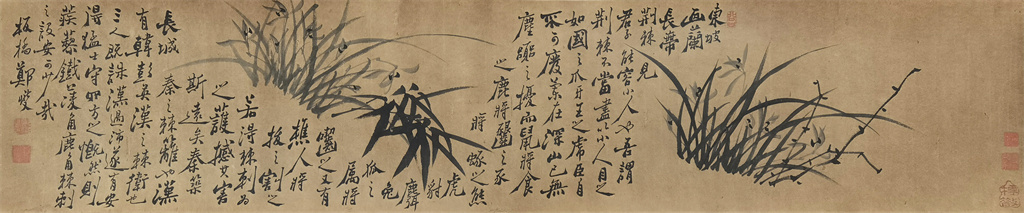 東坡
畫蘭
長帶
荊棘見
君子能容小人也吾謂
荊棘不當盡以小人目之
如國之爪牙王之虎臣自
不可廢蘭在深山已無
塵囂之擾而鼠將食
之鹿將齧之豕
將之熊
虎
豺
麛兔
狐之
屬將
囓之又有
樵人將
拔之割之
若得棘刺為
之護撼其害
斯遠矣秦築
長城秦之棘籬也漢
有韓彭英漢之棘衛也
三人既誅漢高過沛遂有安
得猛士守四方之慨然則
蒺藜鐵菱角鹿角棘刺
之設安可少哉
板橋鄭燮